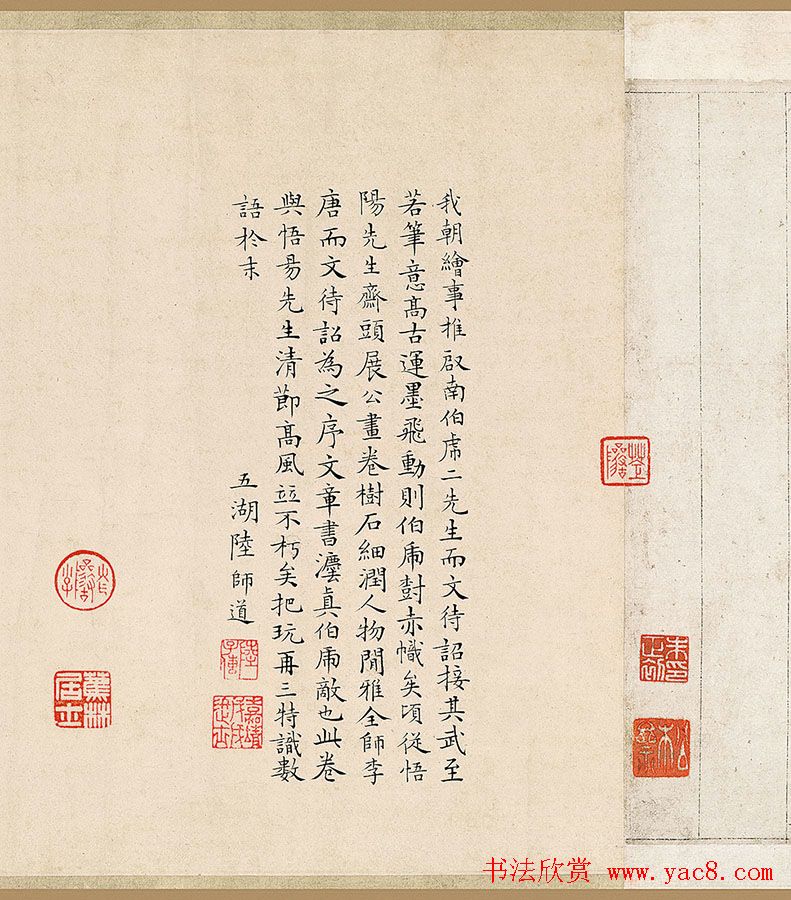 我朝繪事推啟南伯虎二先生而文待詔接其武至
若筆意高古運墨飛動則伯虎尌赤幟矣頃從悟
陽先生齋頭展公畫卷樹石細潤人物閒雅全師李
唐而文待詔為之序文章書灋真伯虎敵也此卷
與悟昜先生清節高風竝不朽矣把玩再三特識數
語於末
五湖陸師道
陸子傳
蕉林居士
书法欣赏 www.yac8.com